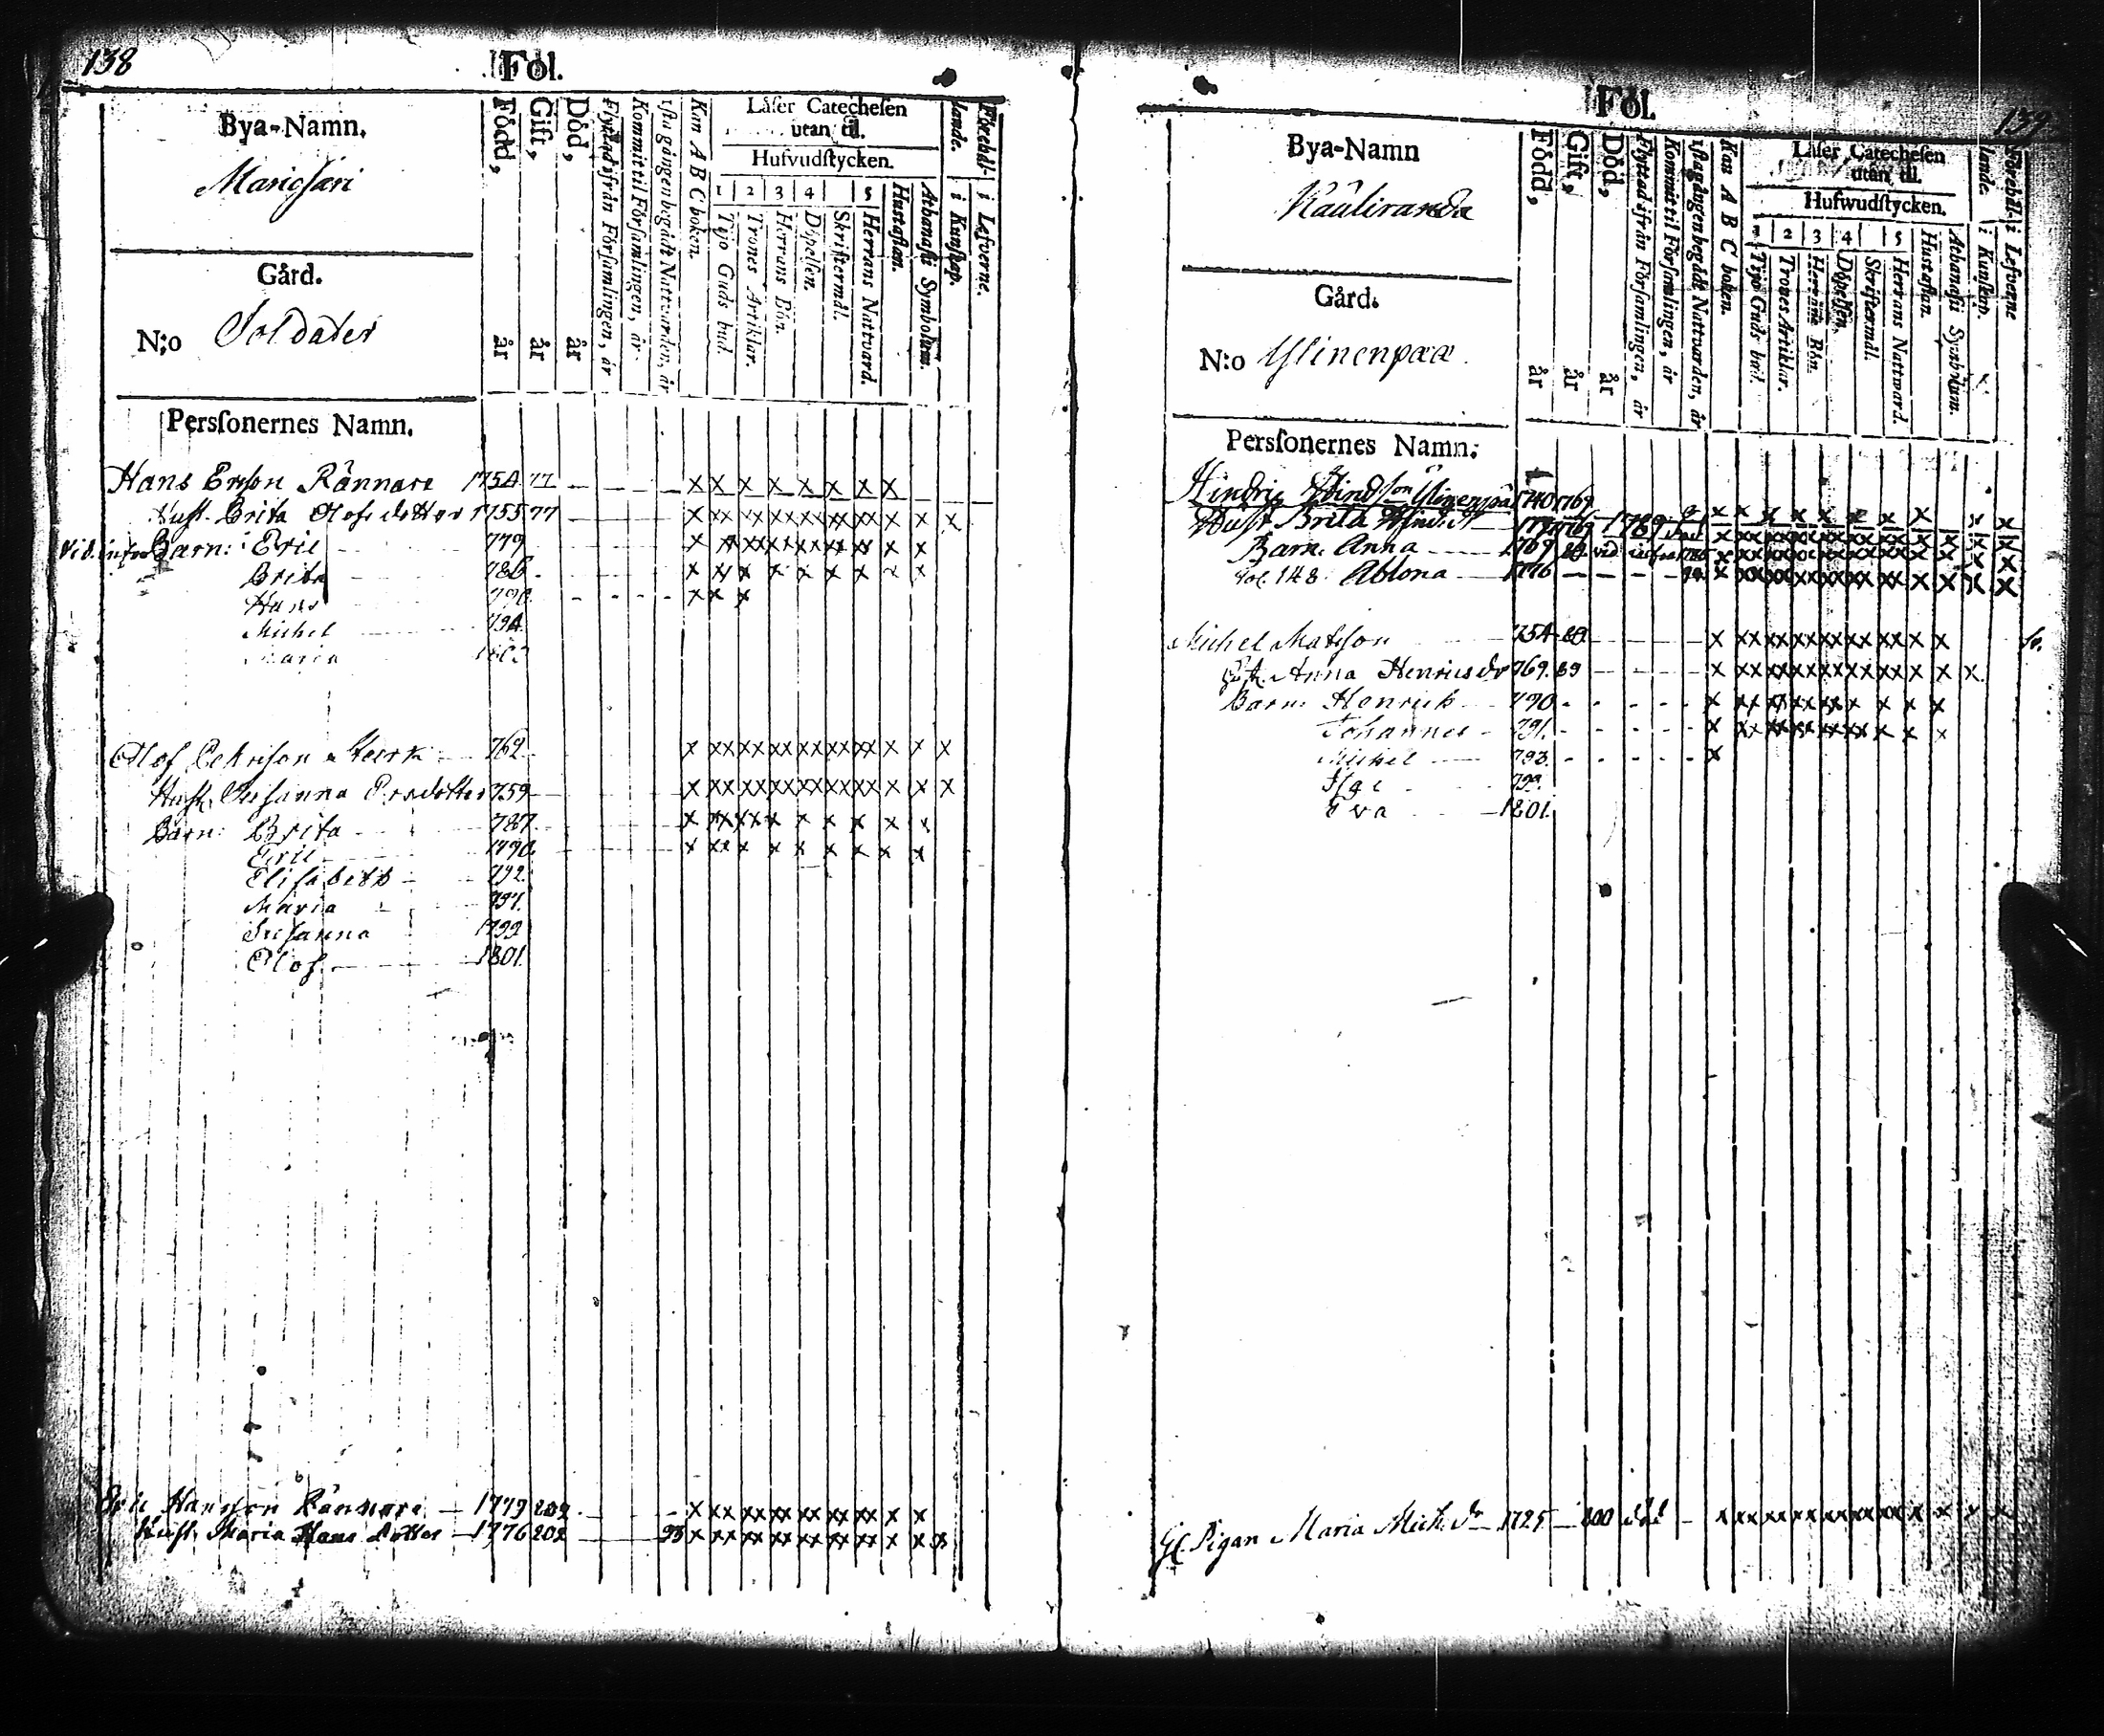 138
Fol.
Bya-Namn.
Mariosari
Gård.
N:o Soldater
Född, år
Gift, år
Död, år
Flyttad ifrån Församlingen, år
Kommit til Församlingen, år
1sta gången begådt Nattvarden, år
Kan A B C boken.
Läser Catechesen
utan til.
Hufvudstycken.
1 2 3 4 5
Tijo Guds bud.
Trones Artiklar.
Herrans Bön.
Döpelsen.
Skriftermål.
Herrans Nattvard.
Hustaflan.
Athanasii Symbolum.
Förebållande.
i Kunskap.
i Lefverne.
Personernes Namn.
Hans Ersson Rännare 1754 77 x x x x x x x x
Hust. Brita Olofsdotter 1755 77 x xx xx xx xx xx xx x x x
Vid. infra Barn: Eric 779 x
Brita 786 x xx x x x x x x x
Hans 790 x x x
Michel 794.
Maria
Olof 762 x xx xx xx xx xx xx x x x
Hust. Susanna Ersdotter 759 x xx xx xx xx xx xx x x x
Barn: Brita 787 x xx xx x x x x x x
Eric 1790 x xx x x x x x x x
Elisabeth 792.
Maria 797.
Susanna 1799
Olof 1801.
Eric Hansson Rännare 1779 802 x xx xx xx xx xx xx x x
Hust. Maria Hans dotter 1776 802 93 x xx xx xx xx xx xx x x x
139
Fol.
Bya-Namn
Kauliranda
Gård.
N:o Ylinenpää
Född, år
Gift, år
Död, år
Flyttad ifrån Församlingen, år
Kommit til Församlingen, år
1sta gången begådt Nattvarden, år
Kan A B C boken.
Läser Catechesen
utan til.
Hufwudstycken.
1 2 3 4 5
Tijo Guds bud.
Trones Artiklar.
Herrans Bön.
Döpelsen.
Skriftermål.
Herrans Nattward.
Hustaflan.
Athanasii Symbolum.
Förebållande.
i Kunskap.
i Lefverne
Personernes Namn:
Hindric Hindsson Ylinenpää 1740 1769
Hust. Brita Hind. dr 1789
Barn: Anna 1769 89 vid infra
Fol. 148. Ablona 1776
Michel Matsson 754 89 x xx xx xx xx xx xx x x
Hust. Anna Henricsdr 769. 89 x xx xx xx xx xx xx x x x
Barn: Henrick 790 x xx xx xx xx x x x x
Johannes 791. x xx xx xx xx xx x x x
Michel 793. x
799.
Eva 1801.
Gl. Pigan Maria Mich. dr 1725 800 död x xx xx xx xx xx xx x x x x